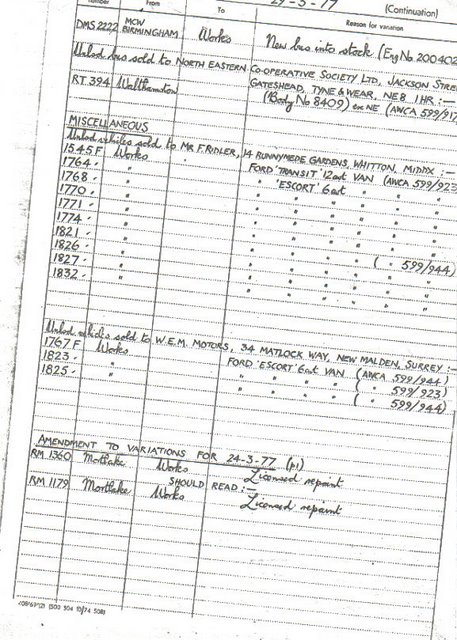 Number From To 29-3-77 (Continuation)
Reason for variation
DMS 2222 MCW BIRMINGHAM Works New bus into stock (Eng No 200402
Unlicd bus sold to NORTH EASTERN CO-OPERATIVE SOCIETY LTD, JACKSON STREE
GATESHEAD, TYNE & WEAR, NE8 1HR:—
RT 394 Walthamstow (Body No 8409) ex NE (AWCA 599/917
MISCELLANEOUS
Unlicd vehicles sold to MR F. RIDLER, 14 RUNNYMEDE GARDENS, WHITTON, MIDDX :—
1545 F Works FORD 'TRANSIT' 12cwt VAN (AWCA 599/923
1764 " " " 'ESCORT' 6cwt " " "
1768 " " " " " " " "
1770 " " " " " " " "
1771 " " " " " " " "
1774 " " " " " " " "
1821 " " " " " " " "
1826 " " " " " ( " 599/944)
1827 " " " " " " " "
1832 " " " " " " " "
Unlicd vehicles sold to W.E.M. MOTORS, 34 MATLOCK WAY, NEW MALDEN, SURREY :—
1767 F Works FORD 'ESCORT' 6cwt VAN (AWCA 599/944)
1823 " " " " " " ( " 599/923)
1825 " " " " " " ( " 599/944)
AMENDMENT TO VARIATIONS FOR 24-3-77 (p1)
RM 1360 Mortlake Works Licensed repaint
SHOULD READ :—
RM 1179 Mortlake Works Licensed repaint